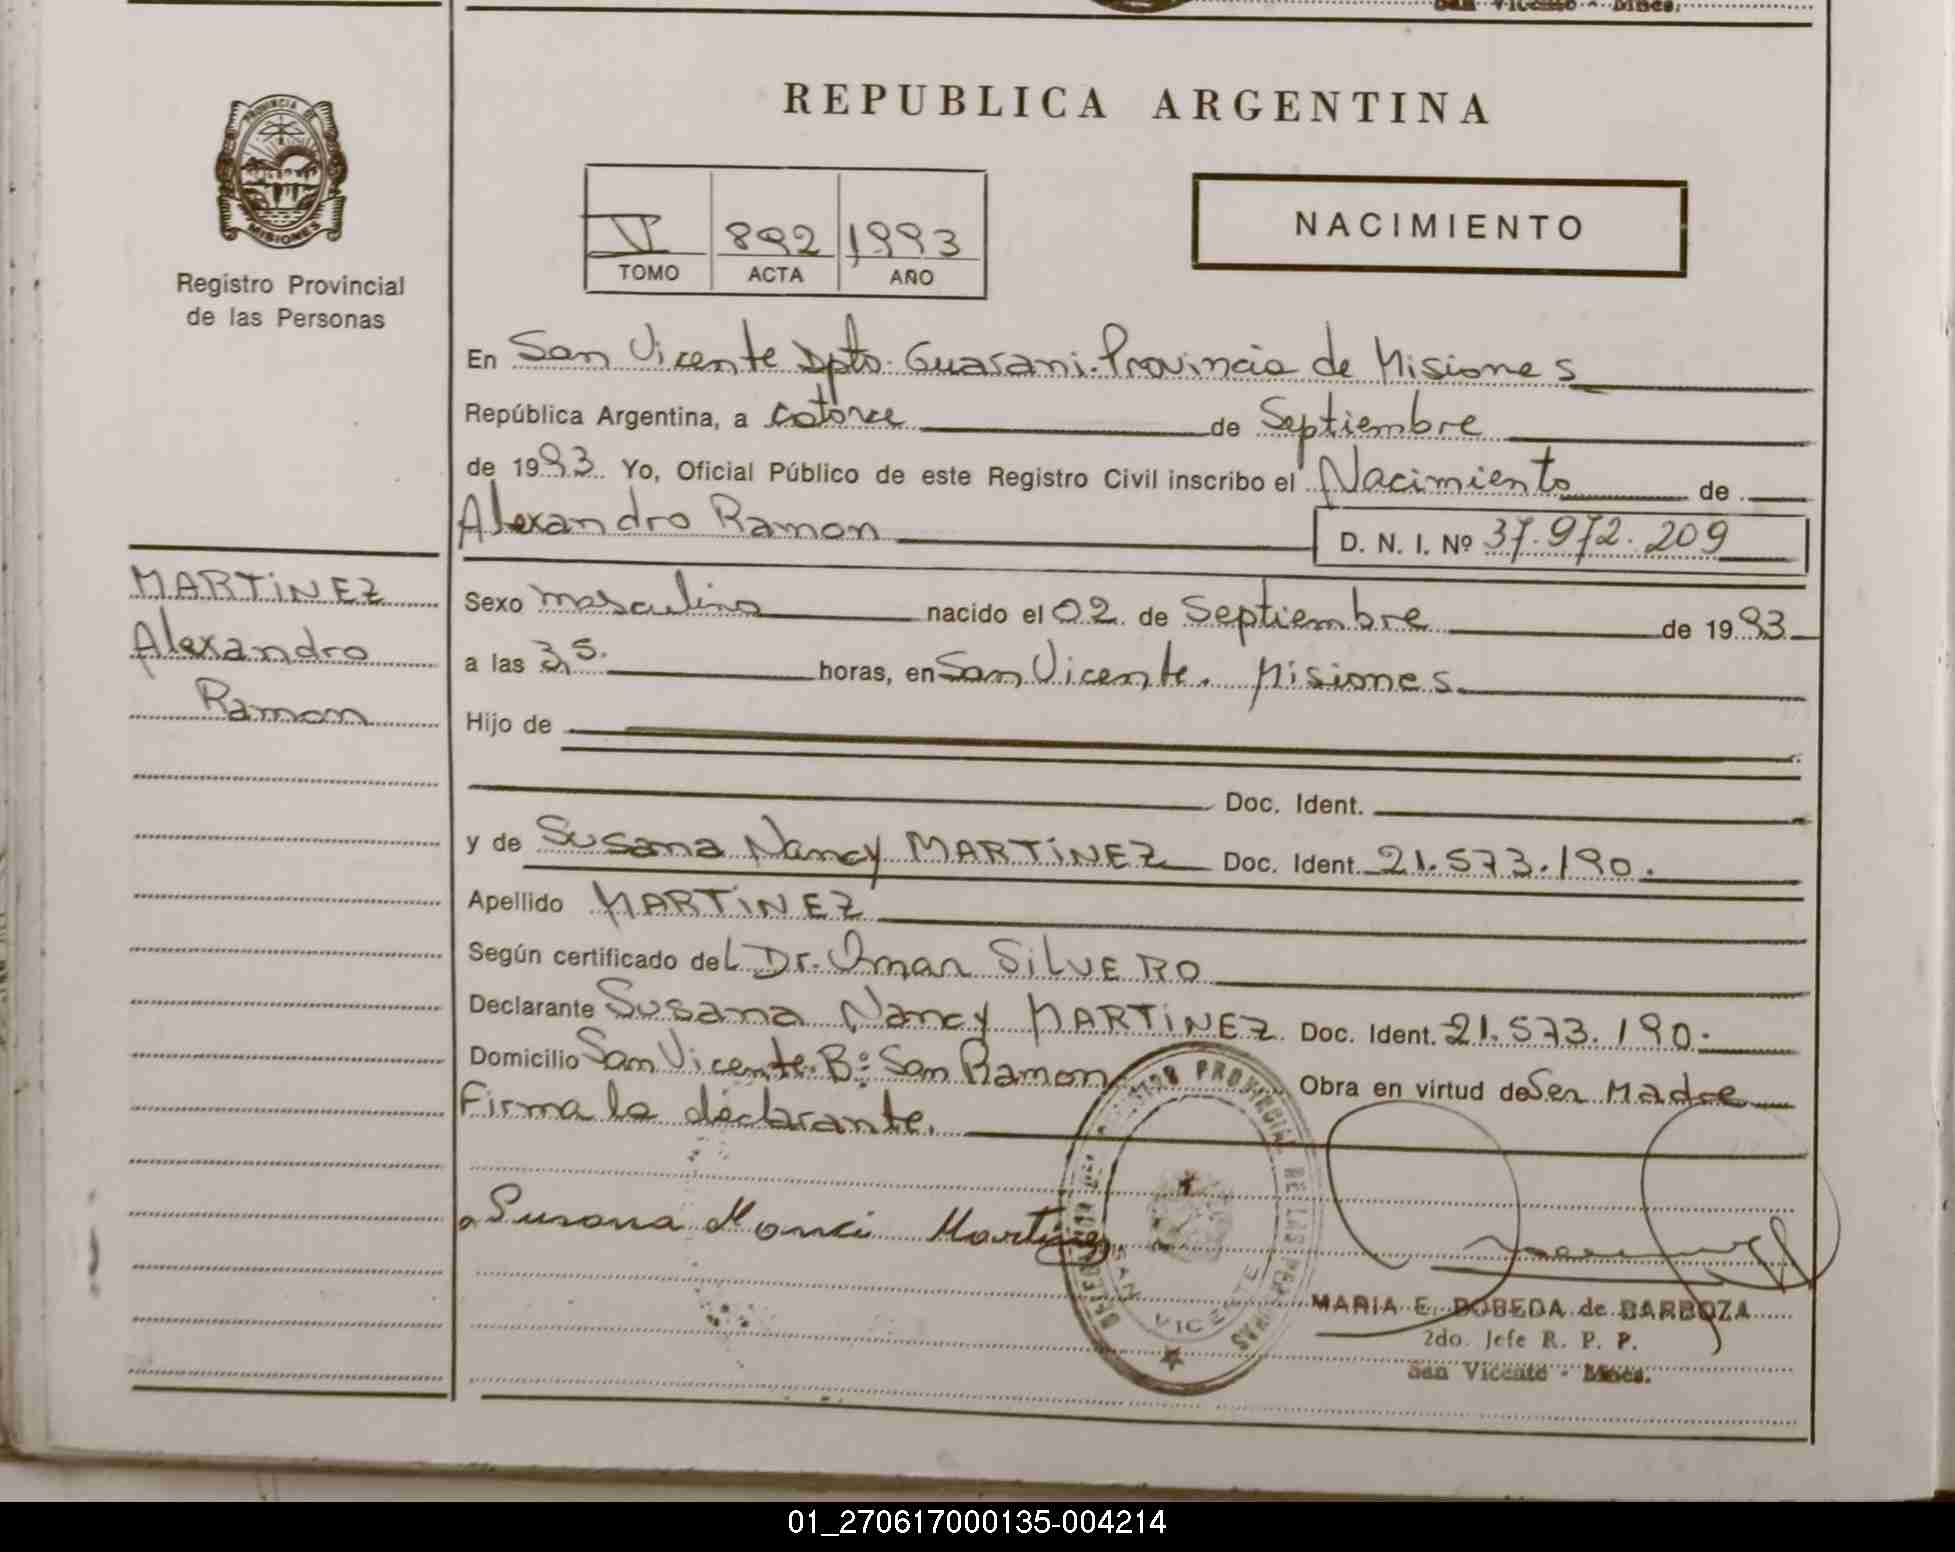 San Vicente - Mnes.
REPUBLICA ARGENTINA
PROVINCIA DE
MISIONES
Registro Provincial
de las Personas
V 892 1993
TOMO ACTA AÑO
NACIMIENTO
En San Vicente Dpto. Guarani. Provincia de Misiones
República Argentina, a catorce de Septiembre
de 1993 Yo, Oficial Público de este Registro Civil inscribo el Nacimiento de
Alexandro Ramon D. N. I. Nº 37.972.209
MARTINEZ
Alexandro
Ramon
Sexo masculino nacido el 02 de Septiembre de 1993
a las 3,5. horas, en San Vicente. Misiones.
Hijo de
Doc. Ident.
y de Susana Nancy MARTINEZ Doc. Ident. 21.573.190.
Apellido MARTINEZ
Según certificado del Dr. Omar SILVERO
Declarante Susana Nancy MARTINEZ Doc. Ident. 21.573.190.
Domicilio San Vicente. Bº: San Ramon Obra en virtud de Ser Madre
Firma la declarante.
Susana Nanci Martinez
PROVINCIAL DE LAS PERSONAS
SAN VICENTE
MARIA E. BOBEDA de BARBOZA
2do. Jefe R. P. P.
San Vicente - Mnes.
01_270617000135-004214